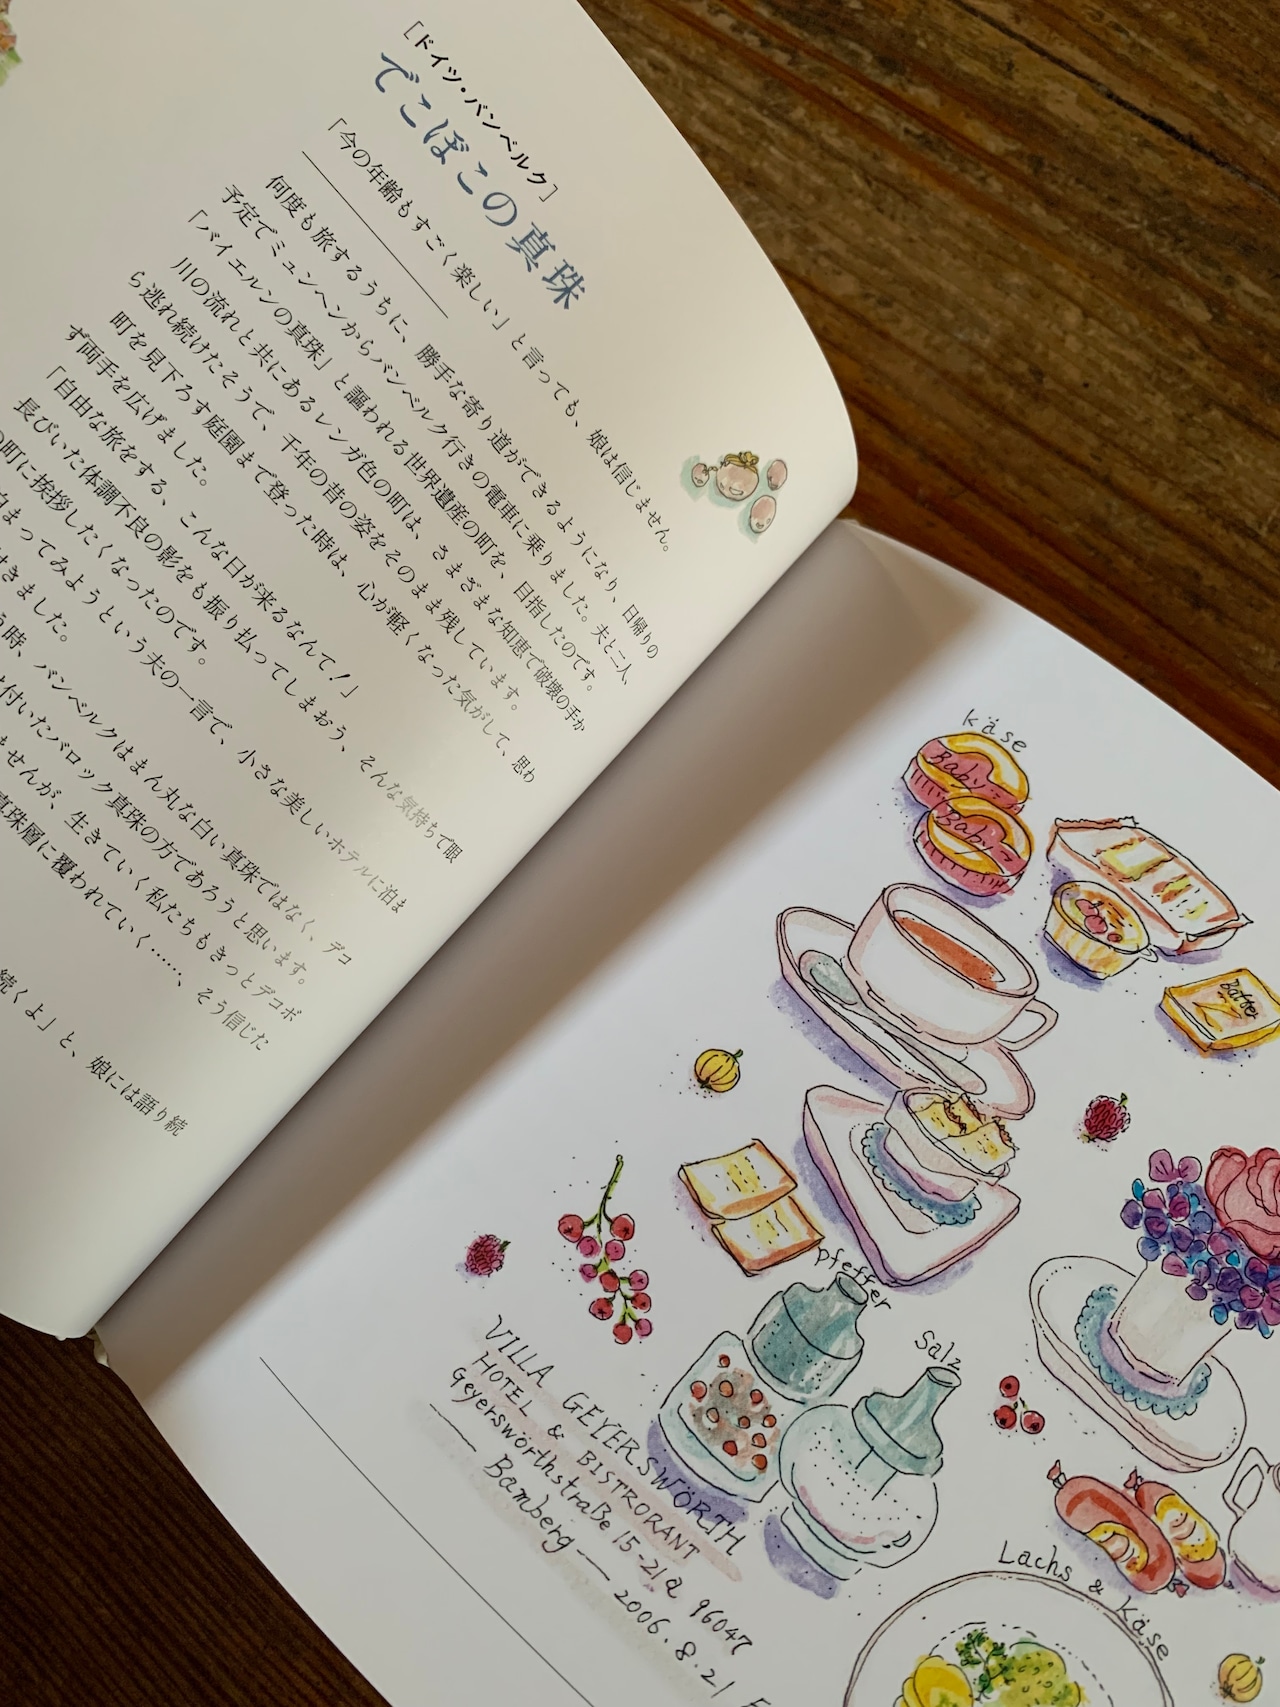 ［ドイツ・バンベルク］
でこぼこの真珠
「今の年齢もすごく楽しい」と言っても、娘は信じません。
何度も旅するうちに、勝手な寄り道ができるようになり、日帰りの
予定でミュンヘンからバンベルク行きの電車に乗りました。夫と二人、
「バイエルンの真珠」と謳われる世界遺産の町を、目指したのです。
川の流れと共にあるレンガ色の町は、さまざまな知恵で破壊の手か
ら逃れ続けたそうで、千年の昔の姿をそのまま残しています。
町を見下ろす庭園まで登った時は、心が軽くなった気がして、思わ
ず両手を広げました。
「自由な旅をする、こんな日が来るなんて！」
長びいた体調不良の影をも振り払ってしまおう、そんな気持ちで眼
の町に挨拶したくなったのです。
泊まってみようという夫の一言で、小さな美しいホテルに泊ま
きました。
時、バンベルクはまん丸な白い真珠ではなく、デコ
付いたバロック真珠の方であろうと思います。
せんが、生きていく私たちもきっとデコボ
真珠層に覆われていく……、そう信じた
続くよ」と、娘には語り続
Käse
Baby
Baby
Butter
Pfeffer
Salz
VILLA GEYERSWÖRTH
HOTEL & BISTRORANT
Geyerswörthstraße 15-21a 96047
— Bamberg — 2006.8.21
Lachs & Käse